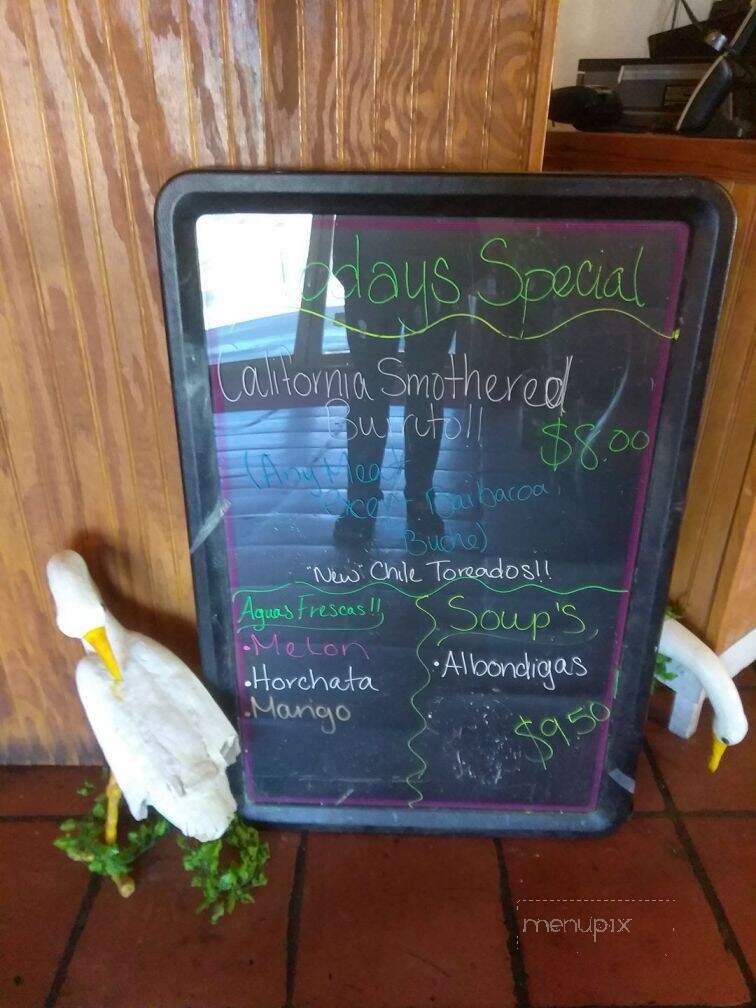 Todays Special
California Smothered
Burrito!!
$8.00
(Any Meat
Barbacoa
Buche)
"New" Chile Toreados!!
Aguas Frescas!!
•Melon
•Horchata
•Mango
Soup's
•Albondigas
$9.50
menupix